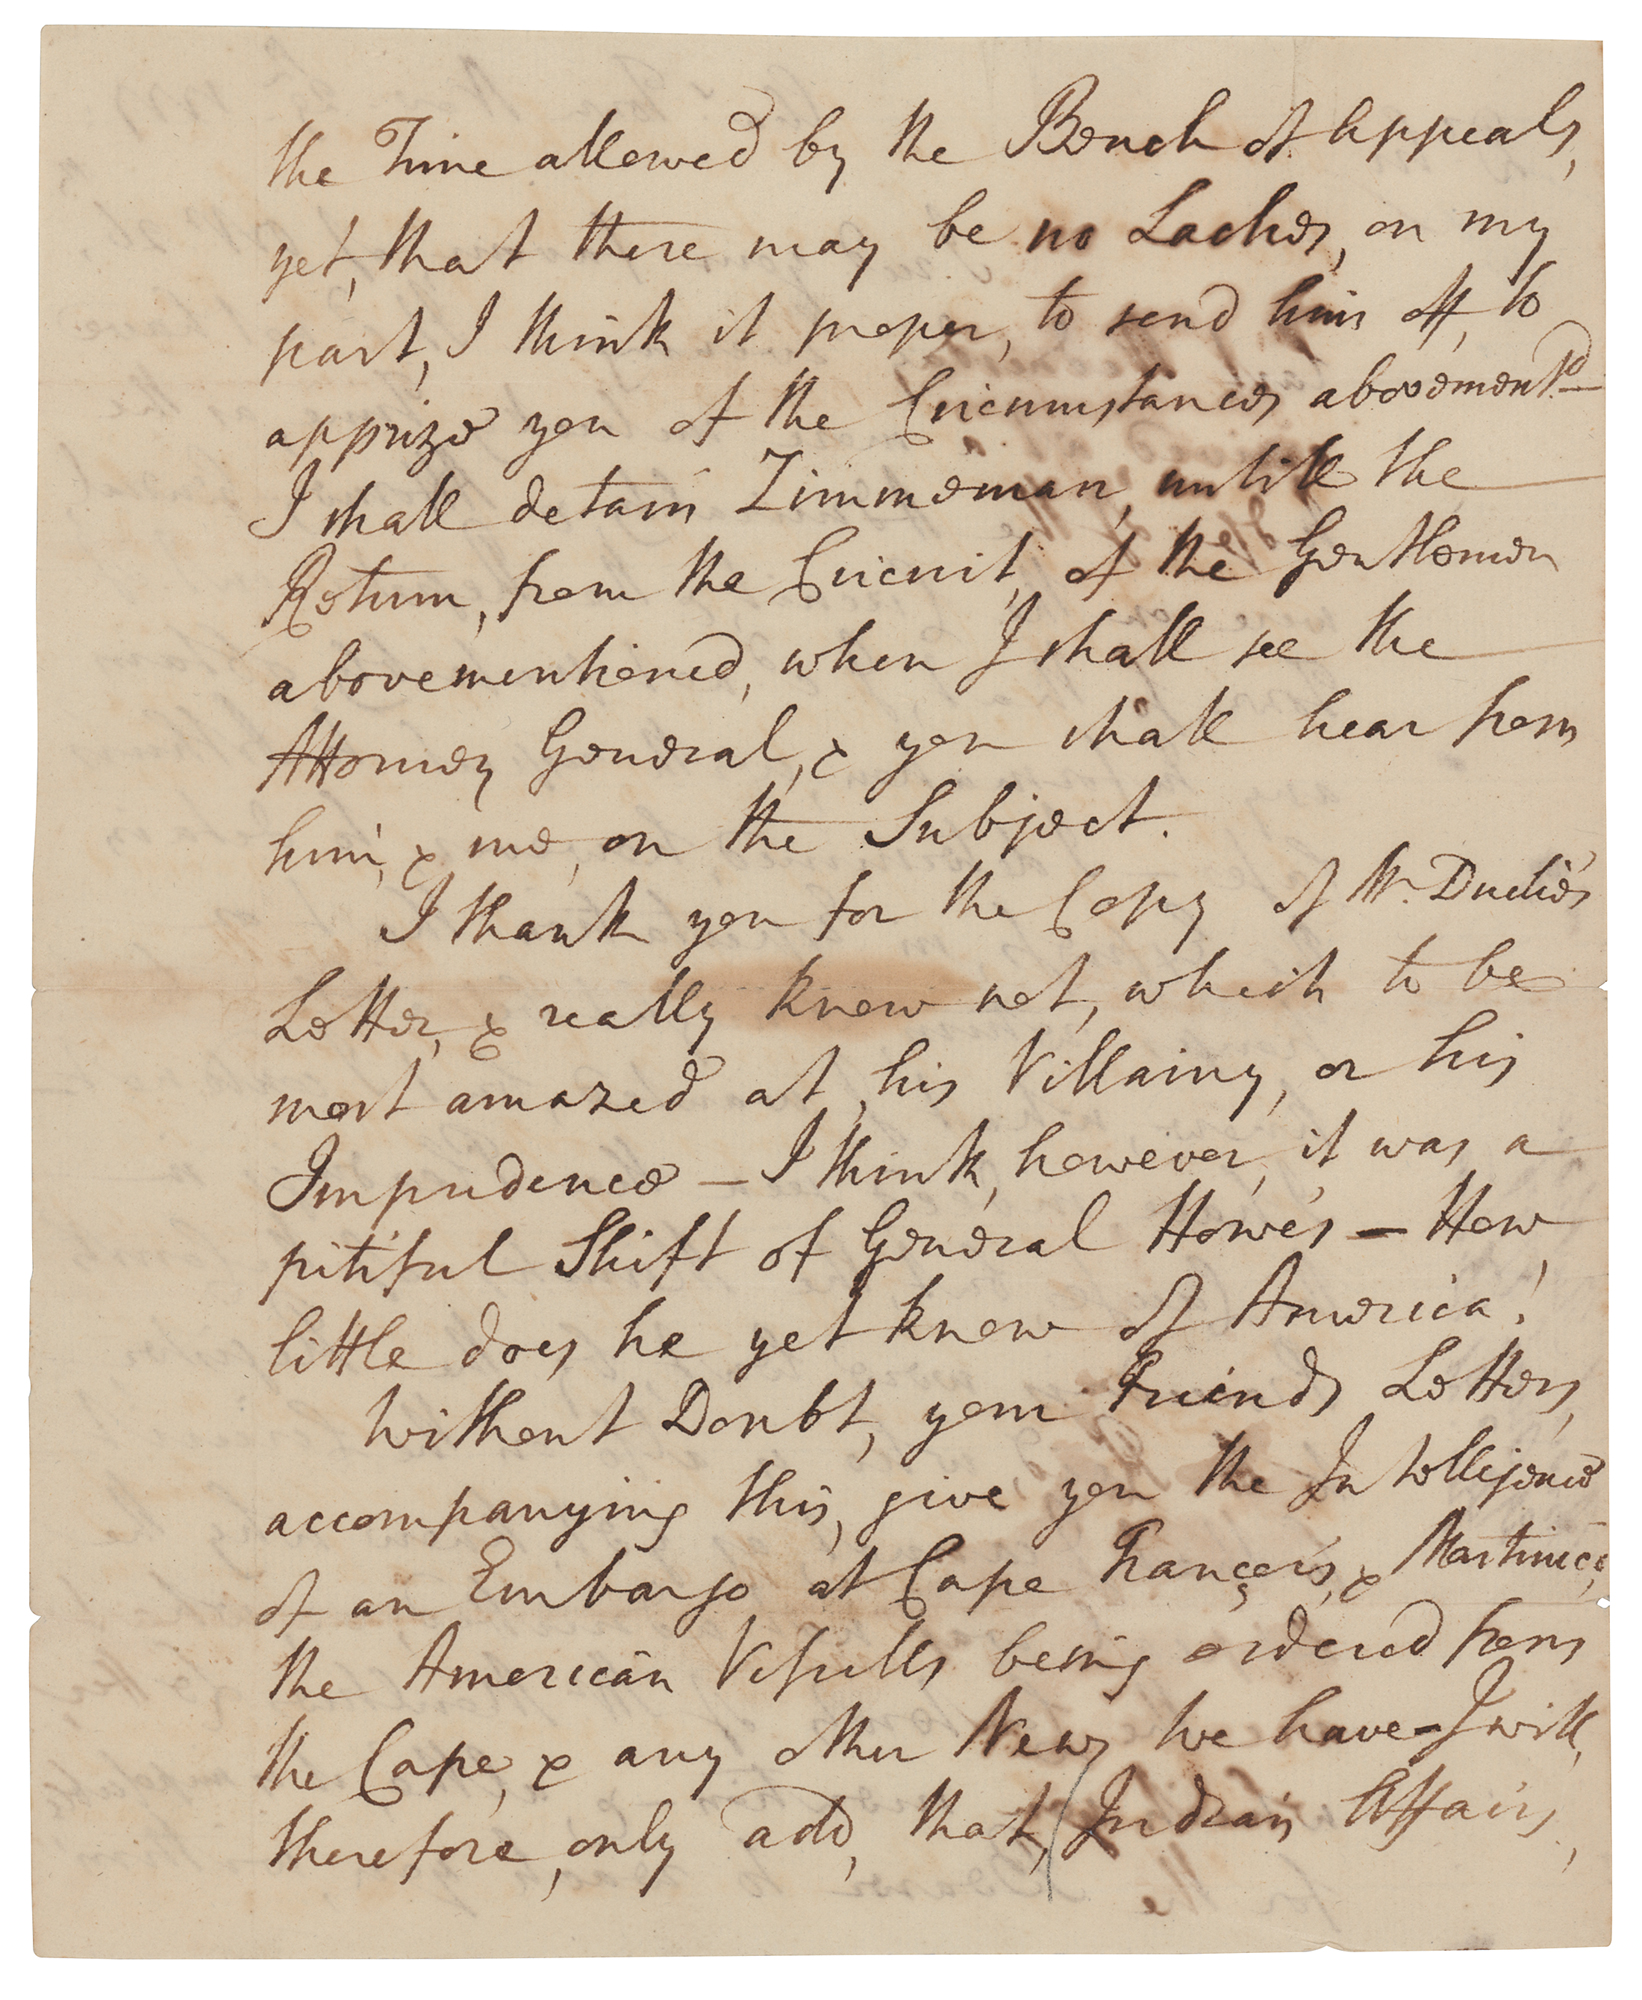 the Time allowed by the Bench of Appeals,
yet, that there may be no Laches, on my
part, I think it proper, to send him off, to
apprize you of the Circumstances abovement.d
I shall detain Zimmerman, untill the
Return, from the Circuit, of the Gentlemen
abovementioned, when I shall see the
Attorney General, & you shall hear from
him, & me, on the Subject.
I thank you for the Copy of Mr. Duché's
Letter, & really know not, which to be
most amazed at, his Villainy, or his
Impudence — I think, however, it was a
pitiful Shift of General Howe's — How,
little does he yet know of America!
Without Doubt, your Friends Letters,
accompanying this, give you the Intelligence
of an Embargo at Cape François, & Martinico,
the American Vessells being ordered from
the Cape, & any other News we have — I will,
therefore, only add, that, Indian Affairs,